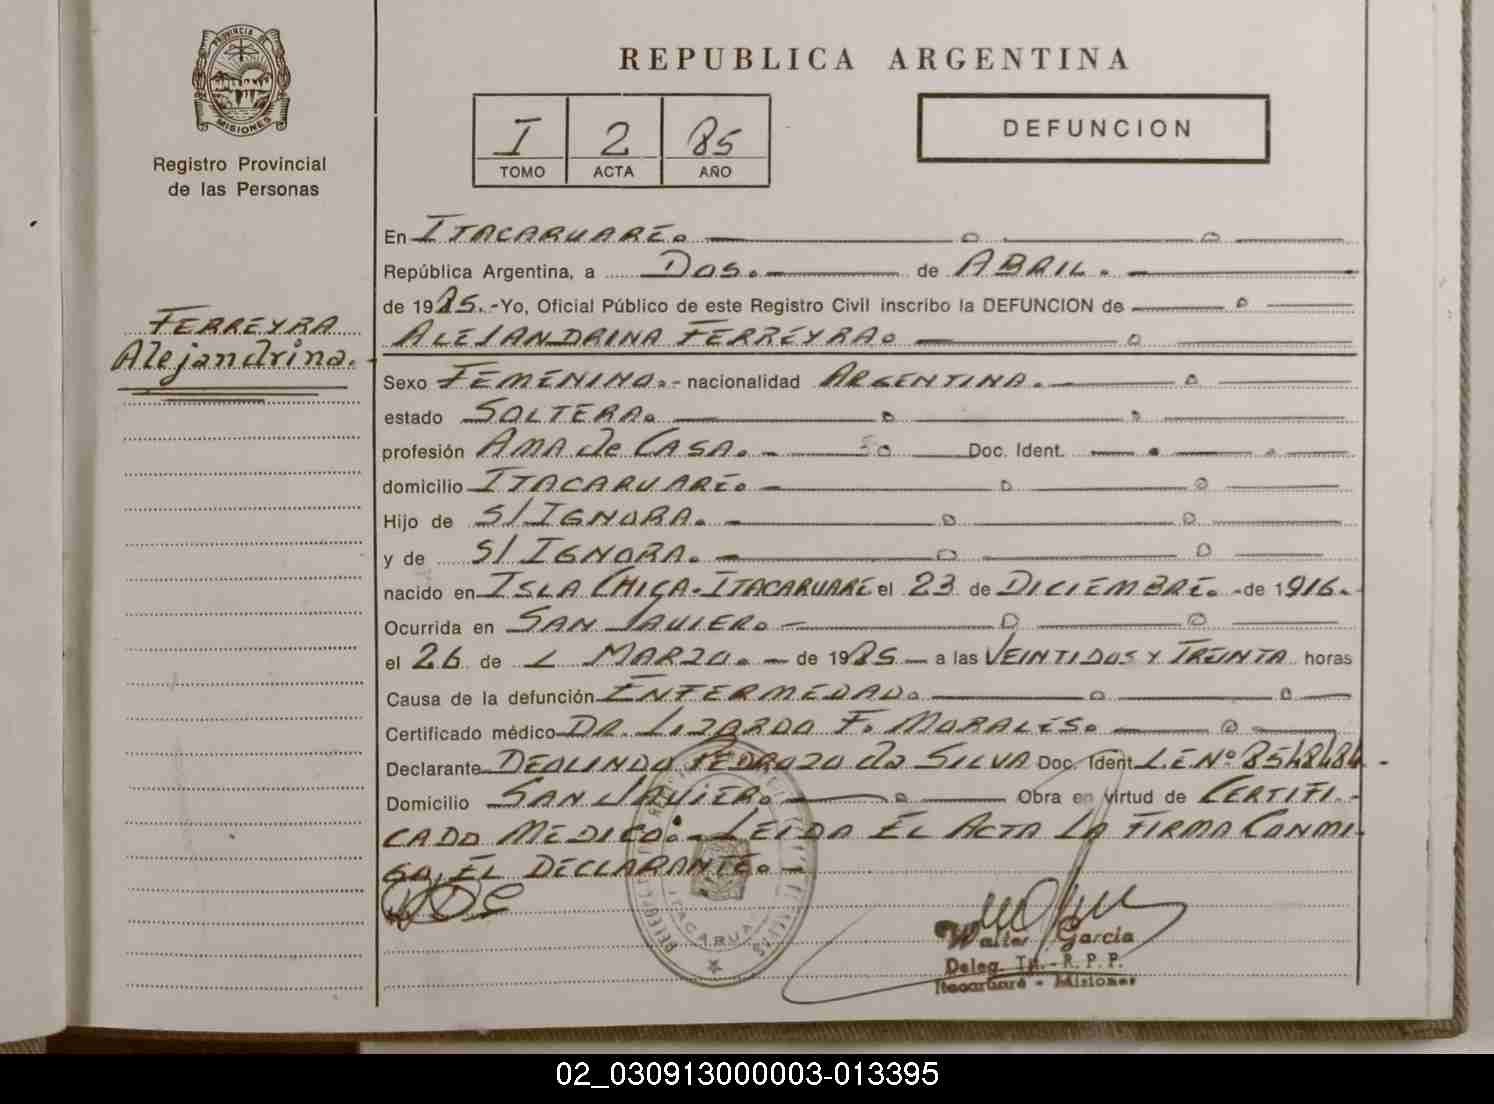 PROVINCIA DE
MISIONES
Registro Provincial
de las Personas
FERREYRA
Alejandrina.
REPUBLICA ARGENTINA
I 2 85
TOMO ACTA AÑO
DEFUNCION
En ITACARUARÉ.
República Argentina, a DOS. de ABRIL.
de 1985.-Yo, Oficial Público de este Registro Civil inscribo la DEFUNCION de
ALEJANDRINA FERREYRA.
Sexo FEMENINO.- nacionalidad ARGENTINA.
estado SOLTERA.
profesión AMA de CASA.- Doc. Ident.
domicilio ITACARUARÉ.
Hijo de S/IGNORA.
y de S/IGNORA.
nacido en ISLA CHICA-ITACARUARÉ el 23 de DICIEMBRE. -de 1916.-
Ocurrida en SAN JAVIER.
el 26 de MARZO.- de 1985- a las VEINTIDOS Y TREINTA horas
Causa de la defunción ENFERMEDAD.
Certificado médico DR. LIZARDO F. MORALES.
Declarante DEOLINDO PEDROZO da SILVA Doc. Ident L.E.Nº 8548484.-
Domicilio SAN JAVIER. Obra en virtud de CERTIFI.-
CADO MEDICO.- LEIDA EL ACTA LA FIRMA CONMI-
GO, EL DECLARANTE.-
ITACARUA
Walter García
Deleg. Tit. - R. P. P.
Itacaruaré - Misiones
02_030913000003-013395